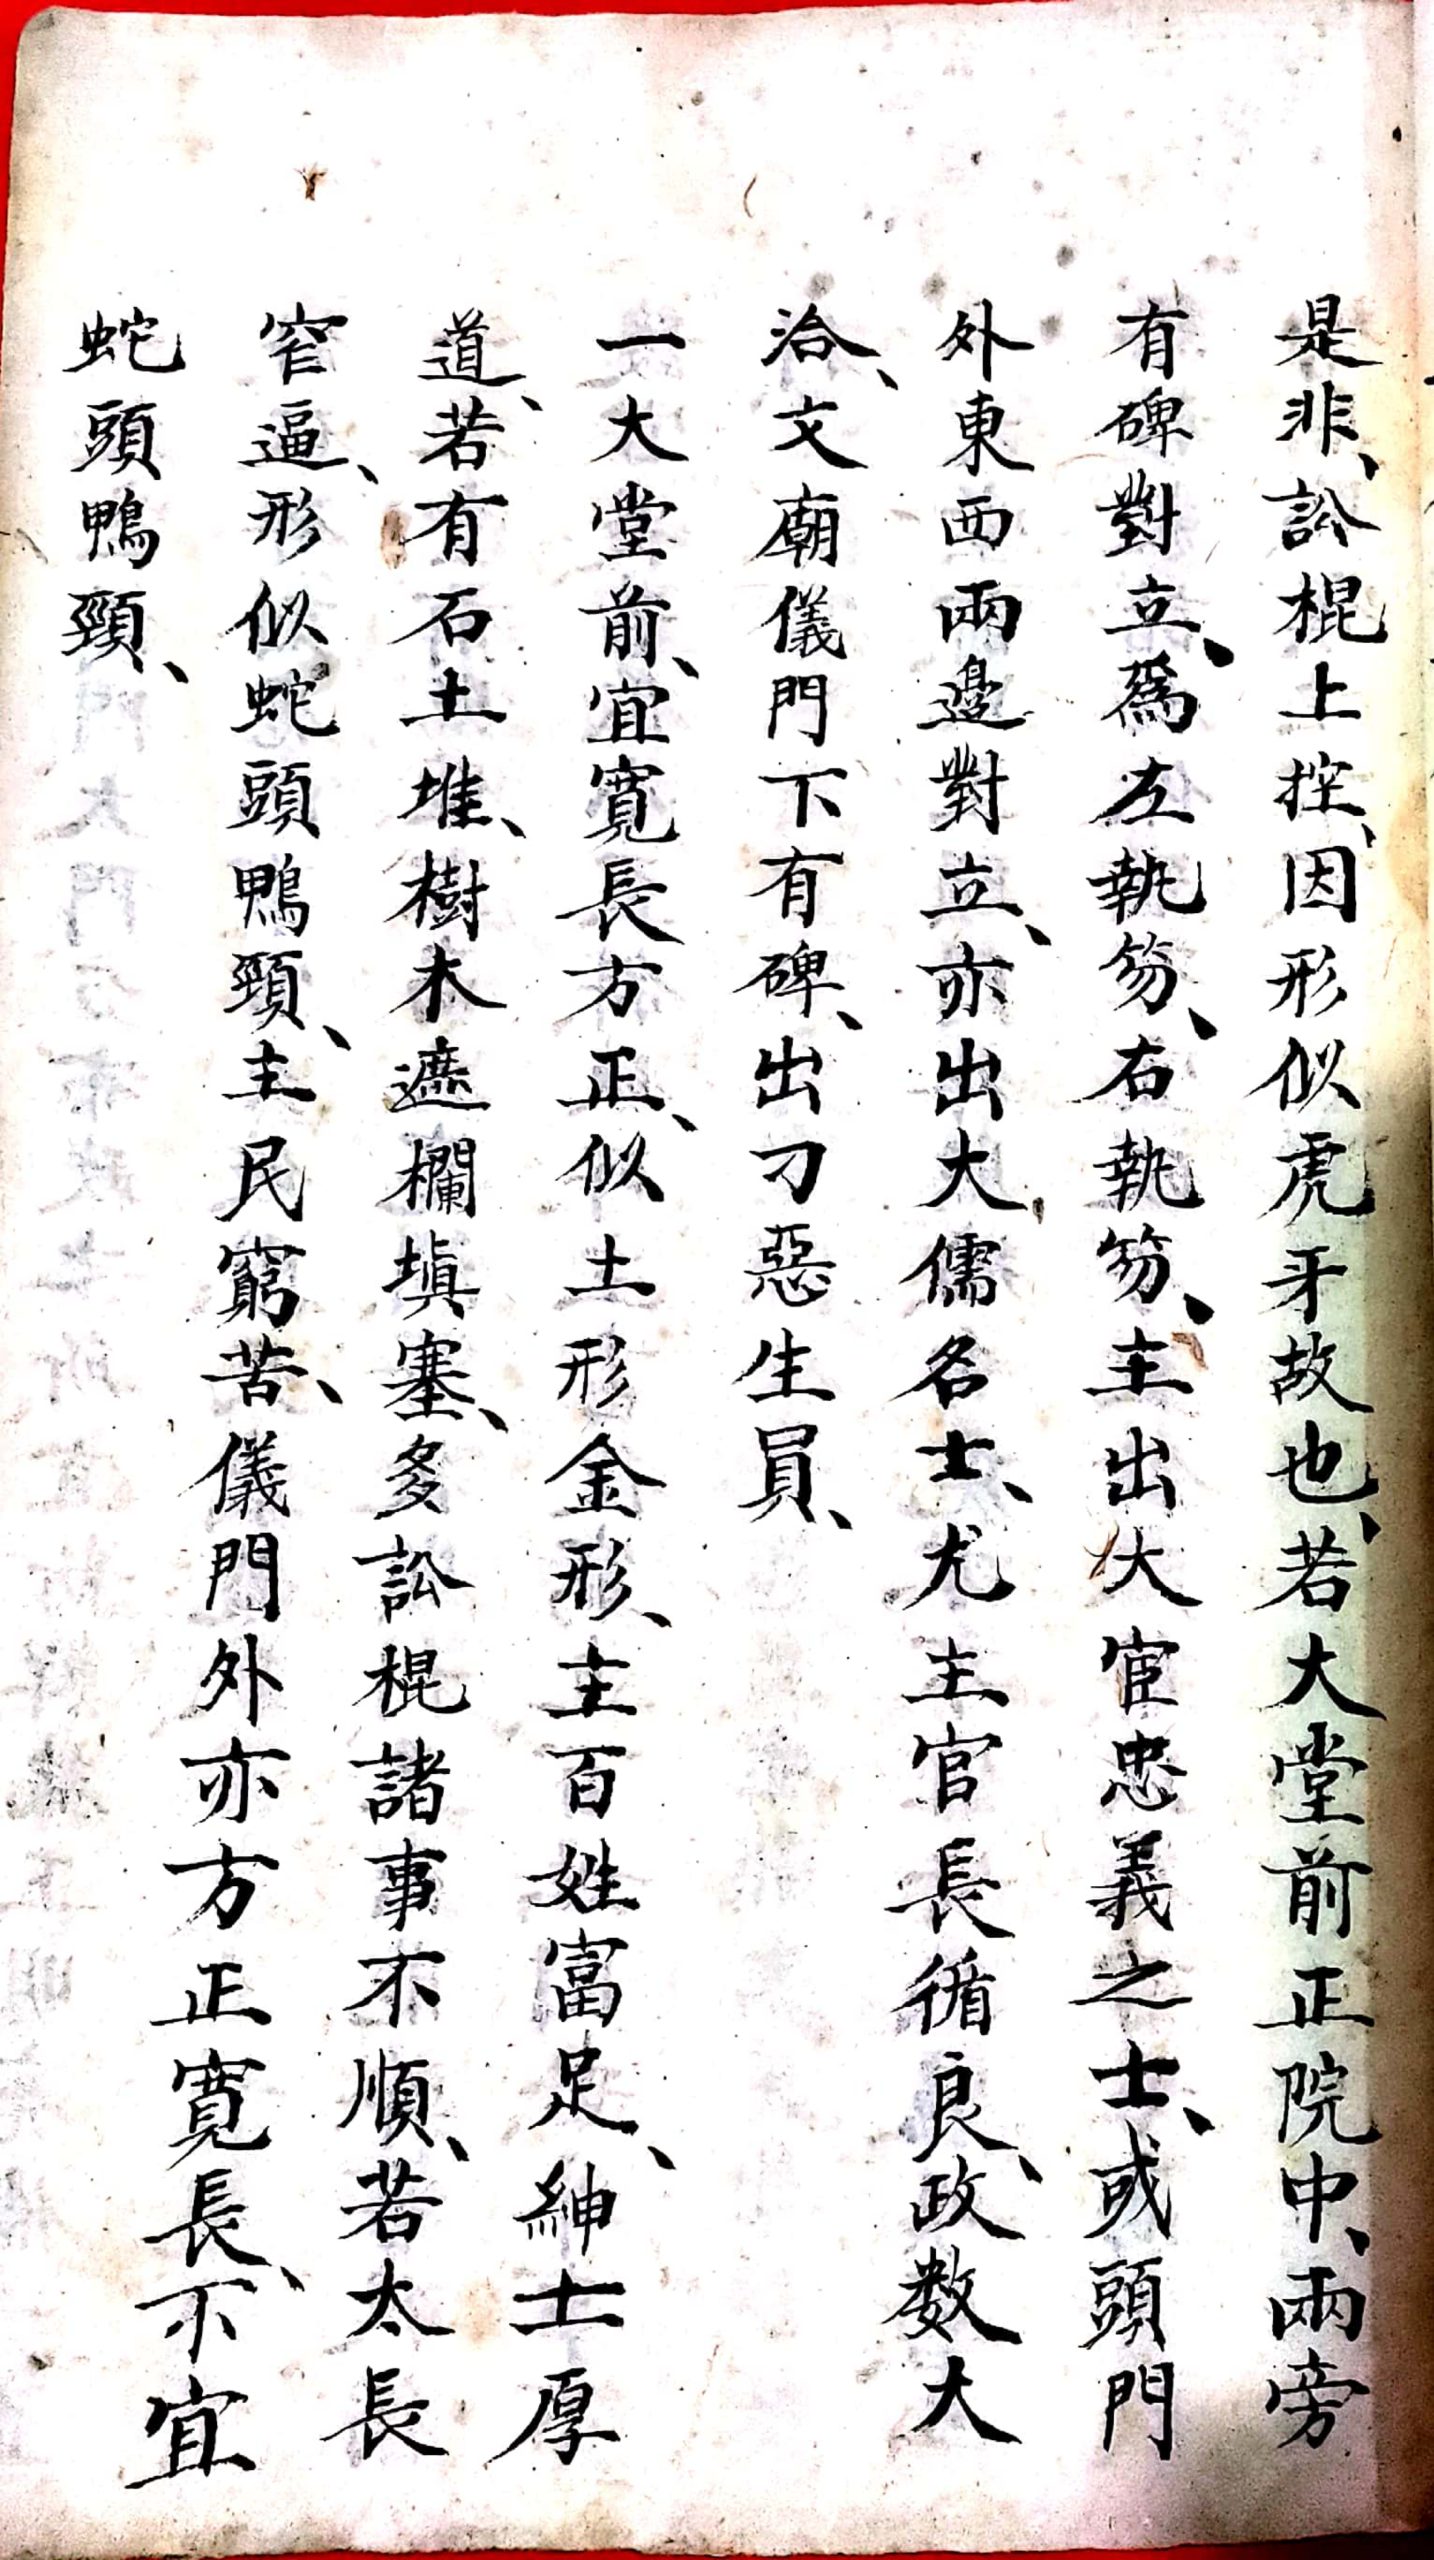 是非、訟棍上控、因形似虎牙故也、若大堂前正院中、兩旁
有碑對立、爲左執笏、右執笏、主出大宦忠義之士、或頭門
外東西兩邉對立、亦出大儒名士、尤主官長循良、政数大
洽、文廟儀門下有碑、出刁惡生員、
一大堂前、宜寬長方正、似土形金形、主百姓富足、紳士厚
道、若有石土堆、樹木遮欄塡塞、多訟棍諸事不順、若太長
窄逼、形似蛇頭鴨頸、主民窮苦、儀門外亦方正寬長、不宜
蛇頭鴨頸、